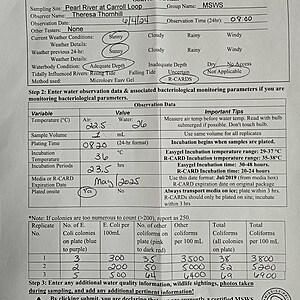 Sampling Site: Pearl River at Carroll Loop Group Name: MSWS
Observer Name: Theresa Thornhill
Observation Date: 6/4/24 Observation Time (24hr): 0900
Current Weather Conditions: Sunny Cloudy Rainy Windy
Weather Details:
Weather previous 24 hr: Sunny Cloudy Rainy Windy
Weather Details:
Waterbody Condition: Adequate Depth Inadequate Depth Dry No Access
Tidally Influenced Rivers: Rising Tide Falling Tide Uncertain Not Applicable
Method used: Micrology Easy Gel R-CARDS
Step 2: Enter water observation data & associated bacteriological monitoring parameters if you are
monitoring bacteriological parameters.
Observation Data
Variable Value Important Tips
Temperature (°C) Air: 22.5 Water: 26 Measure air temp before water temp. Read with bulb
submerged if possible. Don't touch bulb.
Sample Volume 1 mL Use same volume for all replicates
Plating Time 0820 (24-hr format) Incubation begins when samples are plated.
Incubation
Temperature 36 °C Easygel Incubation temperature range: 29-37°C
R-CARD Incubation temperature range: 35-38°C
Incubation Periods 23.5 hrs Easygel Incubation Time: 30-48 hours.
R-CARD Incubation Time: 20-24 hours
Media or R-CARD
Expiration Date May 2025 Use this date format: Jul/2019 (from media box)
R-CARD expiration date on original package
Plated onsite Yes No Always transport media on ice; plate within 3 hrs.
R-CARDs should only be plated on site; incubate
within 3 hrs
*Note: If colonies are too numerous to count (>200), report as 250.
Replicate
No. No. of E.
Coli colonies
on plate (blue
to purple) E. Coli per
100mL No. of other
coliforms
on plate (pink
to dark red) Other
coliforms
per 100 mL Total
Coliforms
(colonies
on plate) Total
Coliforms
per 100 mL
1 3 300 35 3500 38 3800
2 2 200 50 5000 52 5200
3 5 500 64 6400 69 6900
Step 3: Enter any additional water quality information, wildlife sightings, photos taken
during sampling, and add any additional pertinent information!